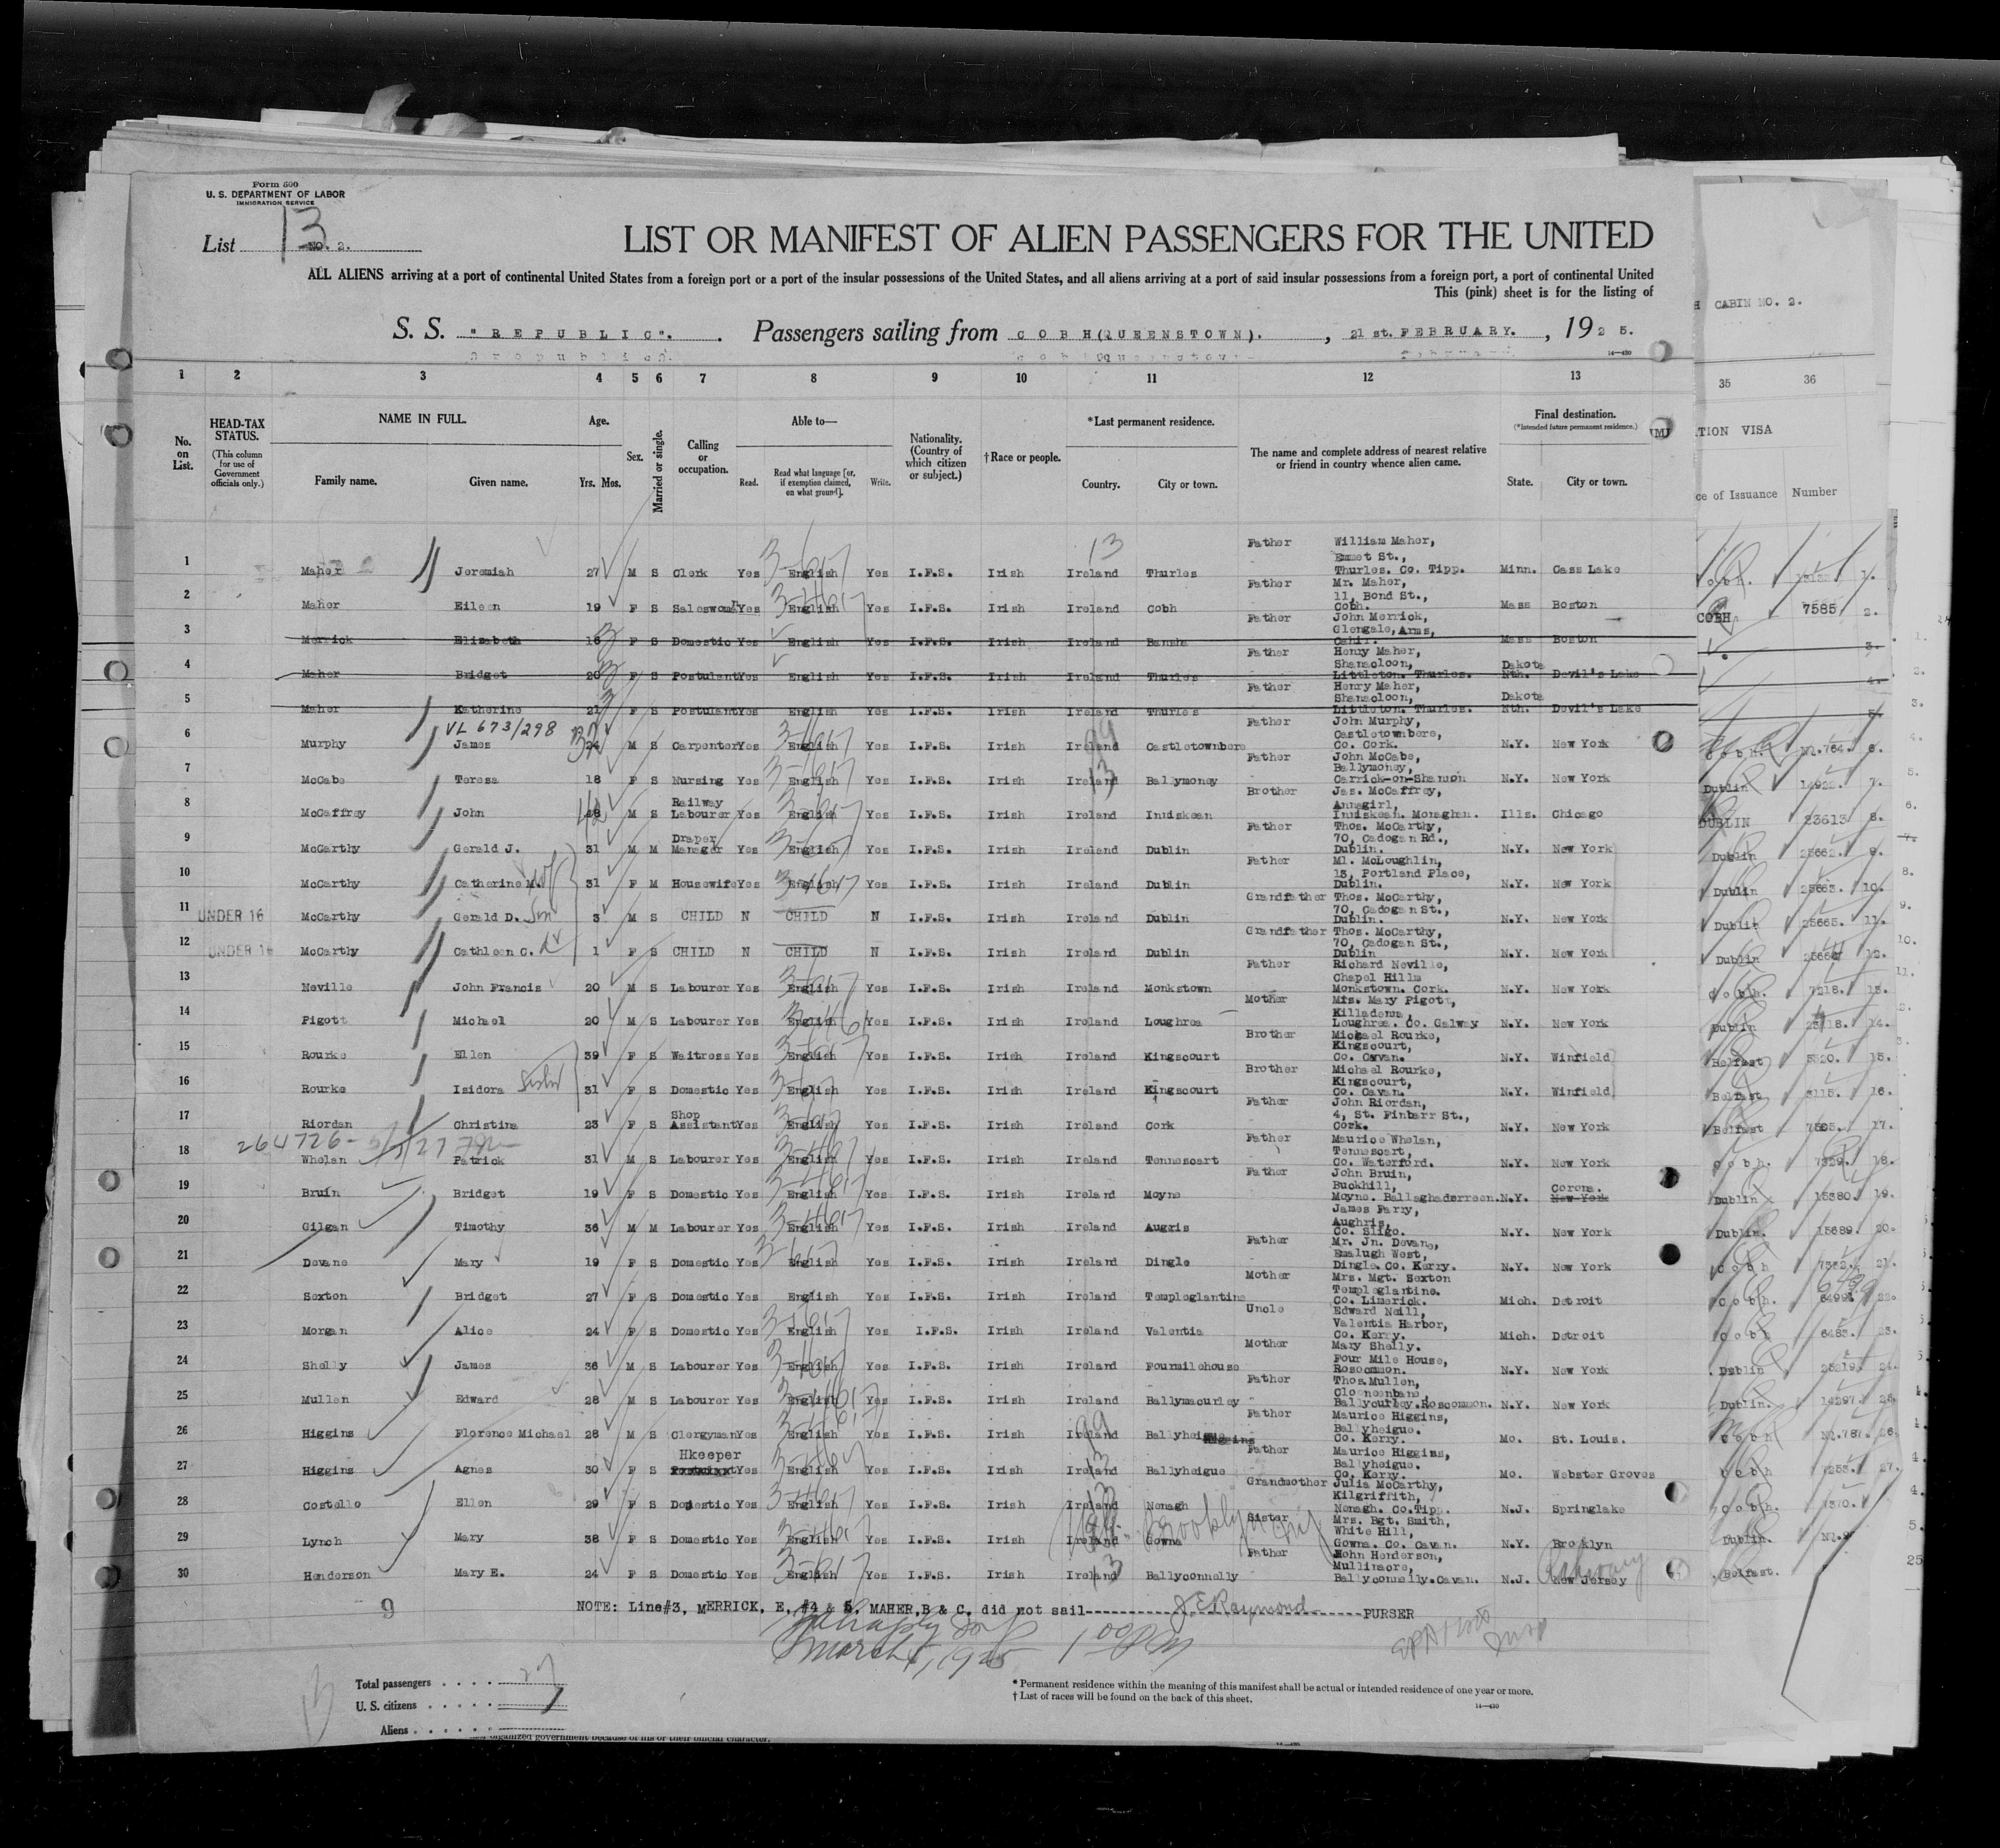 Form 500
U. S. DEPARTMENT OF LABOR
IMMIGRATION SERVICE
List 13 NO. 2.
LIST OR MANIFEST OF ALIEN PASSENGERS FOR THE UNITED
ALL ALIENS arriving at a port of continental United States from a foreign port or a port of the insular possessions of the United States, and all aliens arriving at a port of said insular possessions from a foreign port, a port of continental United
This (pink) sheet is for the listing of
CABIN NO. 2.
S. S. "REPUBLIC". Passengers sailing from COBH(QUEENSTOWN). , 21 st. FEBRUARY. , 1925.
14—430
1 2 3 4 5 6 7 8 9 10 11 12 13 35 36
No. on List. HEAD-TAX STATUS. (This column for use of Government officials only.) NAME IN FULL. Family name. Given name. Age. Yrs. Mos. Sex. Married or single. Calling or occupation. Able to— Read. Read what language [or, if exemption claimed, on what ground]. Write. Nationality. (Country of which citizen or subject.) †Race or people. *Last permanent residence. Country. City or town. The name and complete address of nearest relative or friend in country whence alien came. Final destination. (*Intended future permanent residence.) State. City or town. VISA of Issuance Number
1 Maher Jeremiah 27 M S Clerk Yes English Yes I.F.S. Irish Ireland Thurles Father William Maher, Emmet St., Thurles. Co. Tipp. Minn. Cass Lake
2 Maher Eileen 19 F S Yes English Yes I.F.S. Irish Ireland Cobh Father Mr. Maher, 11, Bond St., Cobh. Mass Boston COBH 7585 2.
3 Merrick Elizabeth 18 F S Domestic Yes English Yes I.F.S. Irish Ireland Bansha Father John Merrick, Glengale, Arms, Cahir. Mass Boston 3.
4 Maher Bridget 20 F S Postulant Yes English Yes I.F.S. Irish Ireland Thurles Father Henry Maher, Shanacloon, Littleton. Thurles. Dakota Nth. Devil's Lake 4.
5 Maher Katherine 21 F S Postulant Yes English Yes I.F.S. Irish Ireland Thurles Father Henry Maher, Shanacloon, Littleton. Thurles. Dakota Nth. Devil's Lake 5.
VL 673/298
6 Murphy James 24 M S Carpenter Yes English Yes I.F.S. Irish Ireland Castletownbere Father John Murphy, Castletownbere, Co. Cork. N.Y. New York 6.
7 McCabe Teresa 18 F S Nursing Yes English Yes I.F.S. Irish Ireland Ballymoney Father John McCabe, Ballymoney, Carrick-on-Shannon N.Y. New York Dublin 7.
8 McCaffrey John M S Railway Labourer Yes English Yes I.F.S. Irish Ireland Inniskean Brother Jas. McCaffrey, Annagirl, Inniskean. Monaghan. Ills. Chicago DUBLIN 23613 8.
9 McCarthy Gerald J. 31 M M Draper Manager Yes English Yes I.F.S. Irish Ireland Dublin Father Thos. McCarthy, 70, Cadogan Rd., Dublin. N.Y. New York Dublin 25662. 9.
10 McCarthy Catherine M. wf 31 F M Housewife Yes English Yes I.F.S. Irish Ireland Dublin Father Ml. McLoughlin, 13, Portland Place, Dublin. N.Y. New York Dublin 25663. 10.
11 UNDER 16 McCarthy Gerald D. Son 3 M S CHILD N CHILD N I.F.S. Irish Ireland Dublin Grandfather Thos. McCarthy, 70, Cadogan St., Dublin. N.Y. New York Dublin 25665. 11.
12 UNDER 16 McCarthy Cathleen C. 1 F S CHILD N CHILD N I.F.S. Irish Ireland Dublin Grandfather Thos. McCarthy, 70, Cadogan St., Dublin N.Y. New York Dublin 12.
13 Neville John Francis 20 M S Labourer Yes English Yes I.F.S. Irish Ireland Monkstown Father Richard Neville, Chapel Hillm Monkstown. Cork. N.Y. New York Cobh. 7218. 13.
14 Pigott Michael 20 M S Labourer Yes English Yes I.F.S. Irish Ireland Loughrea Mother Mrs. Mary Pigott, Killadema, Loughrea. Co. Galway N.Y. New York Dublin 14.
15 Rourke Ellen 39 F S Waitress Yes English Yes I.F.S. Irish Ireland Kingscourt Brother Michael Rourke, Kingscourt, Co. Cavan. N.Y. Winfield Belfast 15.
16 Rourke Isidora Sister 31 F S Domestic Yes English Yes I.F.S. Irish Ireland Kingscourt Brother Michael Rourke, Kingscourt, Co. Cavan. N.Y. Winfield Belfast 3115. 16.
17 Riordan Christina 23 F S Shop Assistant Yes English Yes I.F.S. Irish Ireland Cork Father John Riordan, 4, St. Finbarr St., Cork. N.Y. New York Belfast 17.
264726-
18 Whelan Patrick 31 M S Labourer Yes English Yes I.F.S. Irish Ireland Tennescart Father Maurice Whelan, Tennescart, Co. Waterford. N.Y. New York Cobh. 7329. 18.
19 Bruin Bridget 19 F S Domestic Yes English Yes I.F.S. Irish Ireland Moyne Father John Bruin, Buckhill, Moyne. Ballaghaderreen. N.Y. Corona. New York Dublin 15380. 19.
20 Gilgan Timothy 36 M M Labourer Yes English Yes I.F.S. Irish Ireland Augris James Parry, Aughris, Co. Sligo. N.Y. New York Dublin. 15689. 20.
21 Devane Mary 19 F S Domestic Yes English Yes I.F.S. Irish Ireland Dingle Father Mr. Jn. Devane, Emalugh West, Dingle. Co. Kerry. N.Y. New York Cobh 21.
22 Sexton Bridget 27 F S Domestic English Yes I.F.S. Irish Ireland Templeglantine Mother Mrs. Mgt. Sexton Templeglantine. Co. Limerick. Mich. Detroit Cobh. 22.
23 Morgan Alice 24 F S Domestic Yes English Yes I.F.S. Irish Ireland Valentia Uncle Edward Neill, Valentia Harbor, Co. Kerry. Mich. Detroit Cobh 6483. 23.
24 Shelly James 36 M S Labourer Yes English Yes I.F.S. Irish Ireland Fourmilehouse Mother Mary Shelly. Four Mile House, Roscommon. N.Y. New York Dublin 25219. 24.
25 Mullen Edward 28 M S Labourer Yes English Yes I.F.S. Irish Ireland Ballymacurley Father Thos. Mullen, Clooneenbane, Ballycurley. Roscommon. N.Y. New York Dublin. 14297. 25.
26 Higgins Florence Michael 28 M S Clergyman Yes English Yes I.F.S. Irish Ireland Father Maurice Higgins, Ballyheigue. Co. Kerry. Mo. St. Louis. Cobh 26.
27 Higgins Agnes 30 F S Hkeeper Yes English Yes I.F.S. Irish Ireland Ballyheigue Father Maurice Higgins, Ballyheigue. Co. Kerry. Mo. Webster Groves Cobh 7253. 27.
28 Costello Ellen 29 F S Domestic Yes English Yes I.F.S. Irish Ireland Nenagh Grandmother Julia McCarthy, Kilgriffith, Nenagh. Co. Tipp. N.J. Springlake Cobh. 28.
29 Lynch Mary 38 F S Domestic Yes English Yes I.F.S. Irish Ireland Gowna Brooklyn Sister Mrs. Bgt. Smith, White Hill, Gowna. Co. Cavan. N.Y. Brooklyn Dublin.
30 Henderson Mary E. 24 F S Domestic Yes English Yes I.F.S. Irish Ireland Ballyconnelly Father John Henderson, Mullinacre, Ballyconnelly. Cavan. N.J. New Jersey Belfast.
9 NOTE: Line#3, MERRICK, E, #4 & 5, MAHER,B & C. did not sail---------- J E Raymond ----------PURSER
March 1, 1925 1 00 PM
Total passengers . . . . 27
U. S. citizens . . . . .
Aliens . . . . . .
* Permanent residence within the meaning of this manifest shall be actual or intended residence of one year or more.
† List of races will be found on the back of this sheet.
14—430
organized government because of his or their official character.